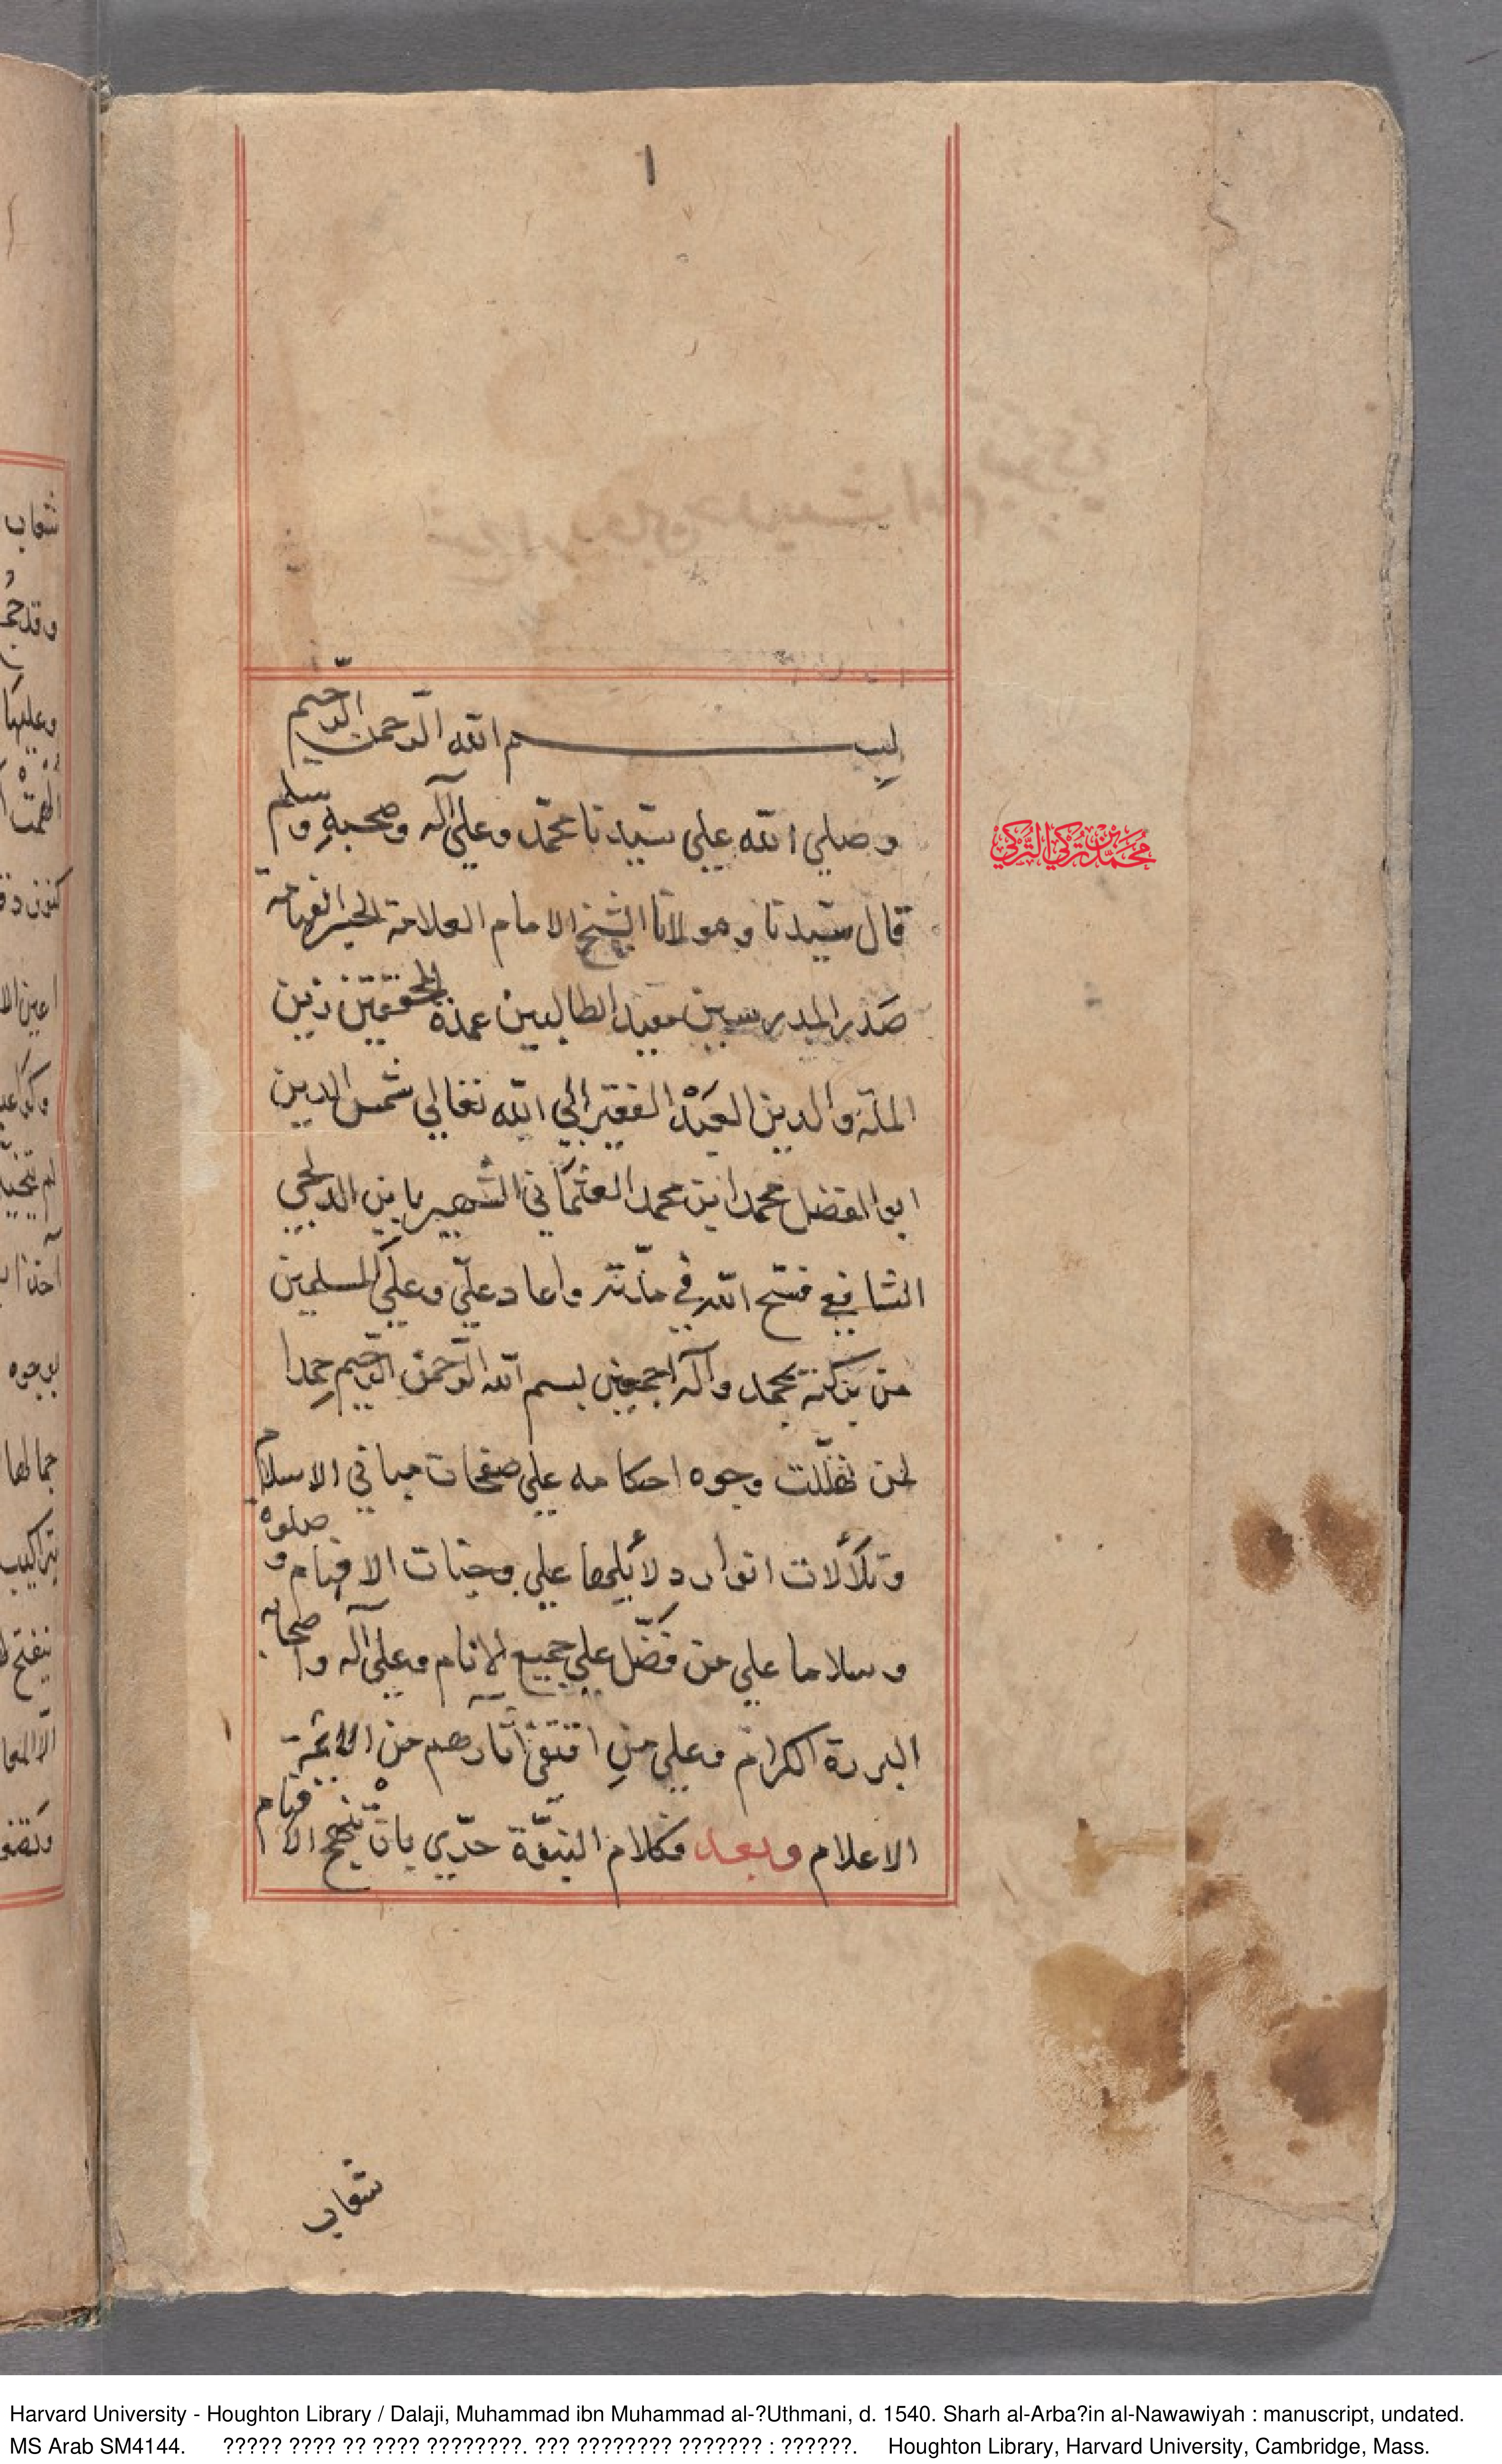 ١
بسم الله الرحمن الرحيم
وصلي الله علي سيدنا محمد وعلي آله وصحبه وسلم
قال سيدنا ومولانا الشيخ الامام العلامة الحبر الفهامة
صدر المدرسين مفيد الطالبين عمدة المحققين زين
الملة والدين العبد الفقير الي الله تعالي شمس الدين
ابو الفضل محمد ابن محمد العثماني الشهير بابن الدلجي
الشافعي فتح الله في مدته واعاد علي وعلي المسلمين
من بركته بمحمد وآله اجمعين بسم الله الرحمن الرحيم حمدا
لمن تهللت وجوه احكامه علي صفحات مباني الاسلام
وتلألات انوار دلائلها علي وجنات الافهام و صلوة
وسلاما علي من فضل علي جميع الانام وعلي آله واصحابه
البررة الكرام وعلي من اقتفي آثارهم من الائمة
الاعلام وبعد فكلام النبوة حري بان تنهج الافهام
شعاب
محمد بن تركي التركي
شعاب
وعليها
بوجوه
جمالها
Harvard University - Houghton Library / Dalaji, Muhammad ibn Muhammad al-?Uthmani, d. 1540. Sharh al-Arba?in al-Nawawiyah : manuscript, undated.
MS Arab SM4144. ????? ???? ?? ???? ????????. ??? ???????? ??????? : ??????. Houghton Library, Harvard University, Cambridge, Mass.